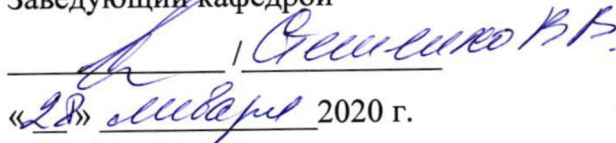 Заведующий кафедрой
/ Стешенко В В.
«28» января 2020 г.